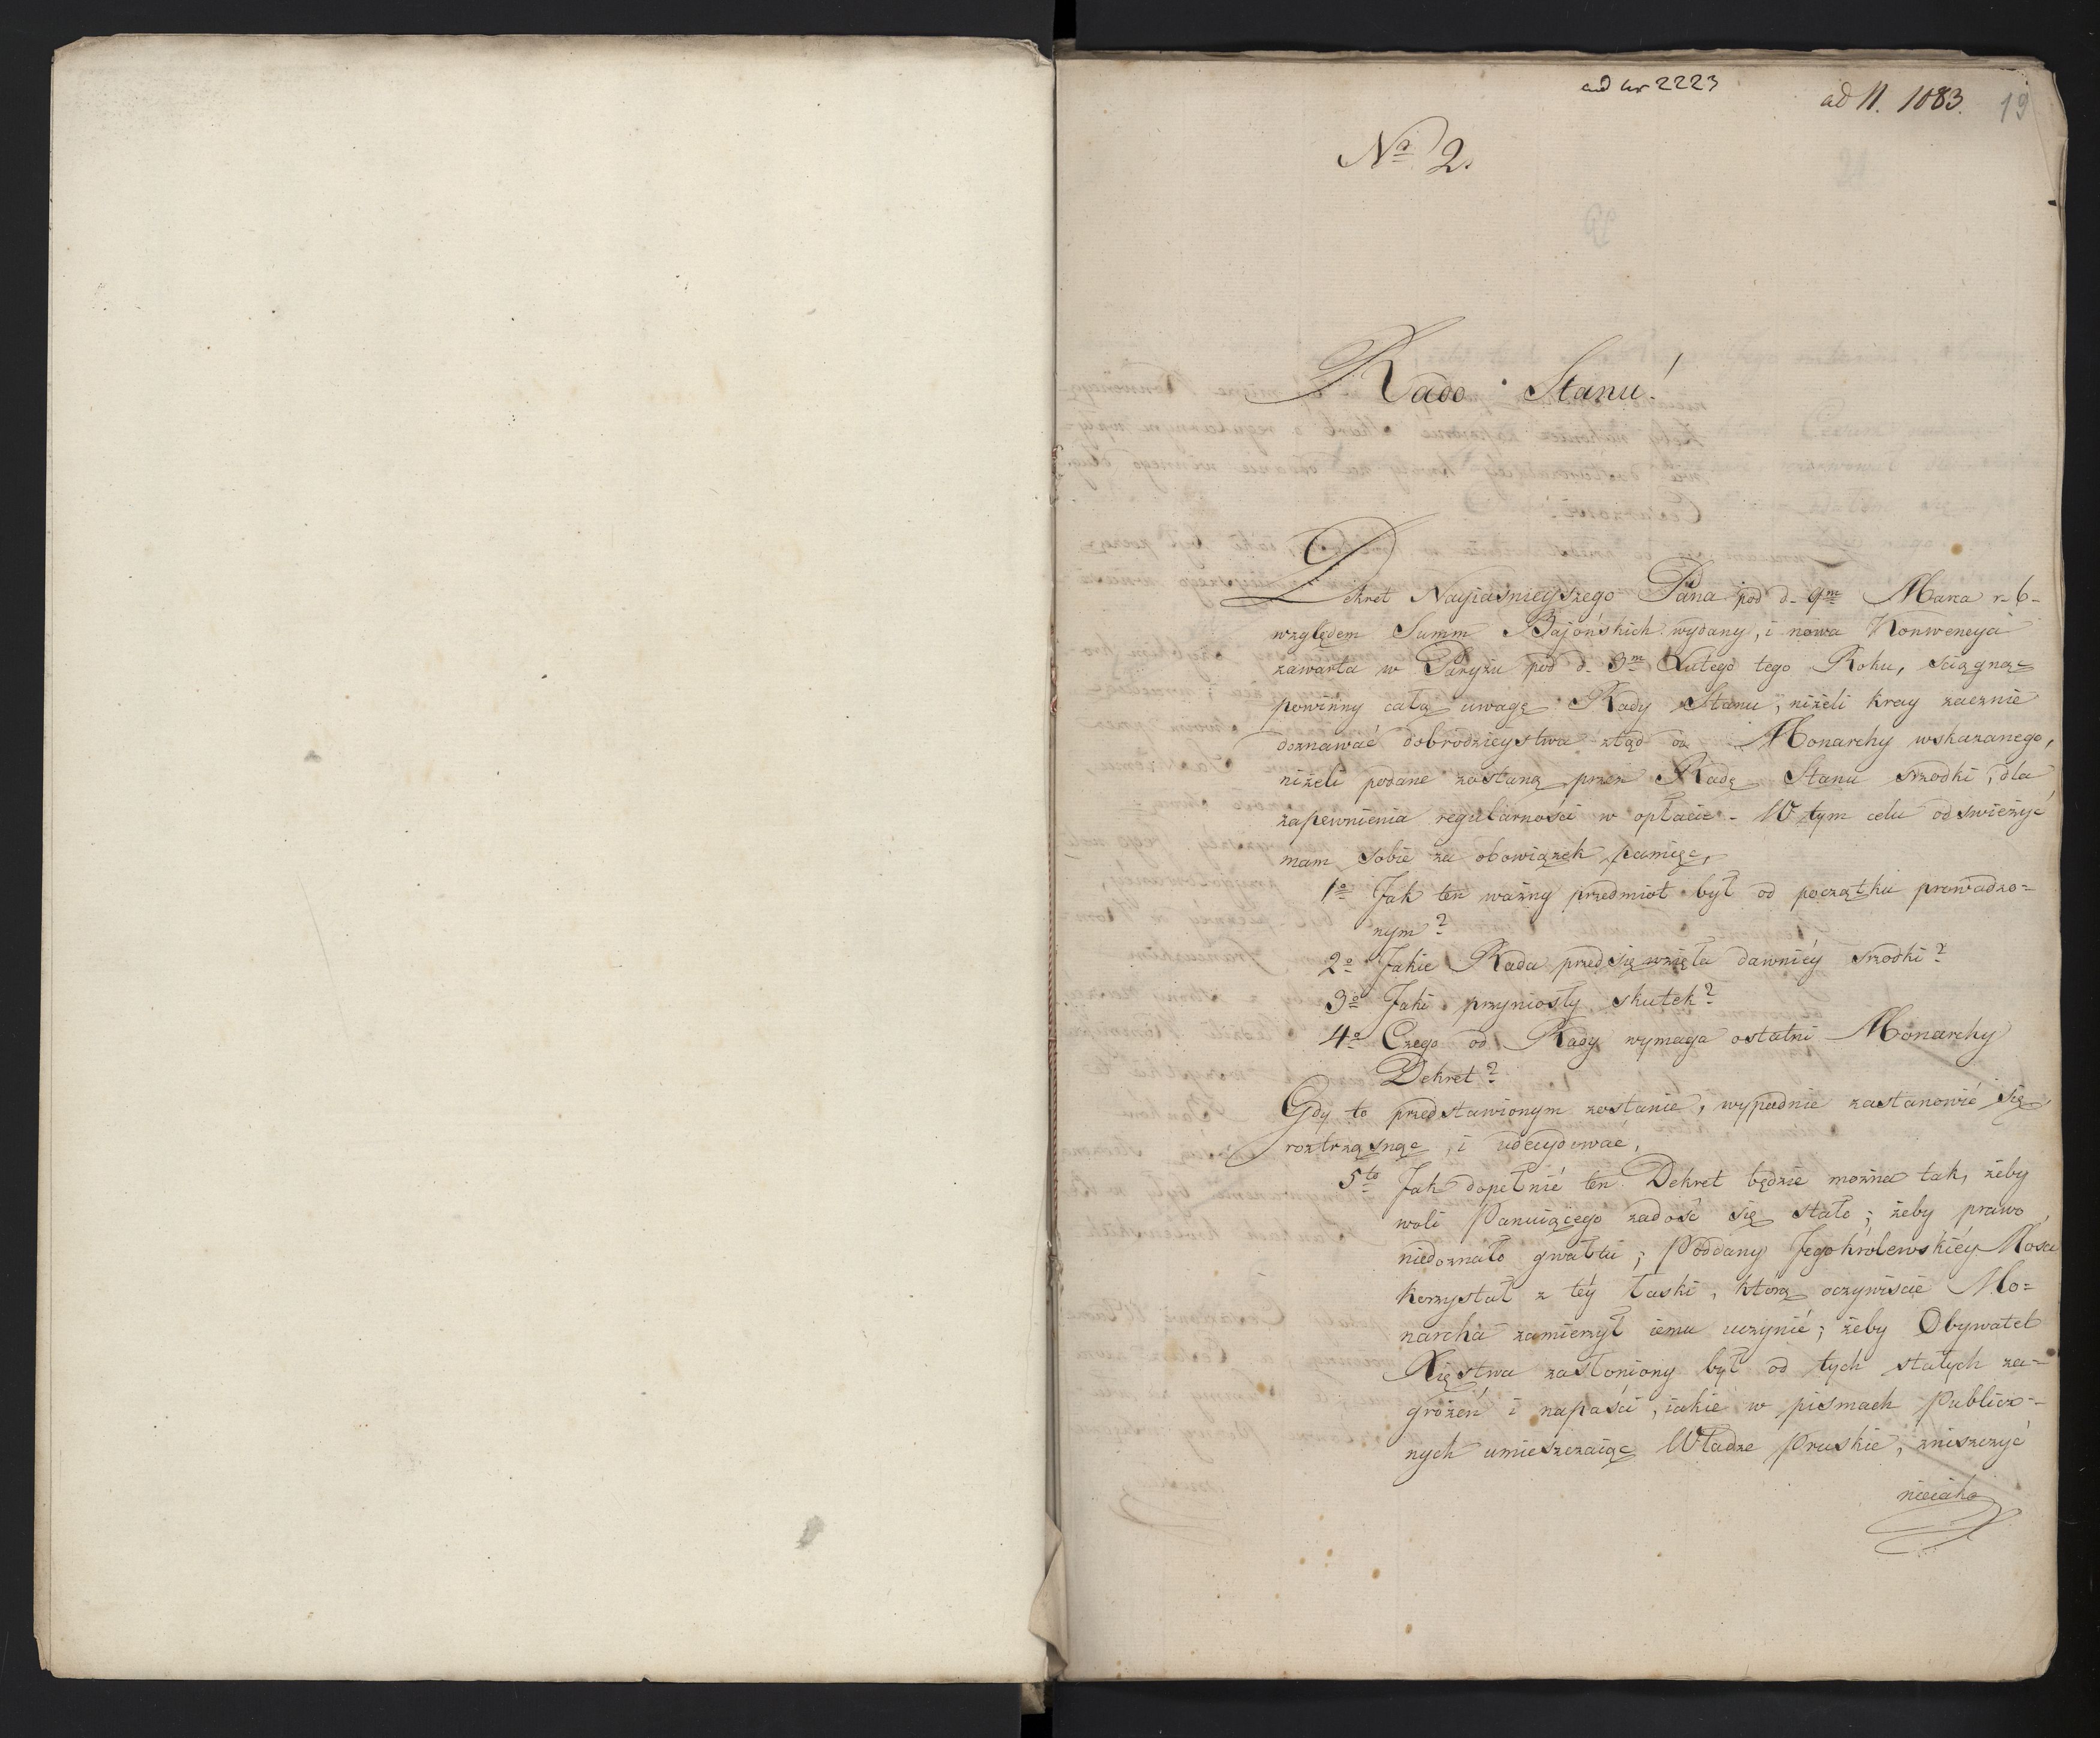 ad nr 2223
ad N. 1083. 19
No 2.
Rado Stanu!
Dekret Nayiaśnieyszego Pana pod d. 9m Marca r. b.
względem Summ Bajońskich wydany, i nowa Konwencya
zawarta w Paryżu pod d. 3m Lutego tego Roku, sciągnąc
powinny całą uwagę Rady Stanu, niżeli kray zacznie
doznawać dobrodzieystwa ztąd od Monarchy wskazanego,
niżeli podane zostaną przez Radę Stanu srzodki, dla
zapewnienia regularności w opłacie - W tym celu odswieżyć
mam sobie za obowiązek pamięc,
1o Jak ten ważny przedmiot był od początku prowadzo=
nym?
2o Jakie Rada przedsięwzięła dawniéy srzodki?
3o Jaki przyniosły skutek?
4o Czego od Rady wymaga ostatni Monarchy
Dekret?
Gdy to przedstawionym zostanie, wypadnie zastanowić się,
roztrząsnąc, i udecydować,
5to Jak dopełnić ten Dekret będzie można tak, żeby
woli Panuiącego zadość się stało; żeby prawo
niedoznało gwałtu; Poddany Jego Królewskiéy Mości
korzystał z téy łaski, którą oczywiscie Mo=
narcha zamierzył iemu uczynić; żeby Obywatel
Xięstwa zasłoniony był od tych stałych za=
grożeń i napaści, iakie w pismach Publicz=
nych umieszczaiąc Władze Pruskie, zniszczyć
nieiako